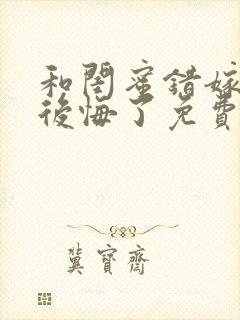 和閨蜜錯嫁
後悔了免費
冀寶齋